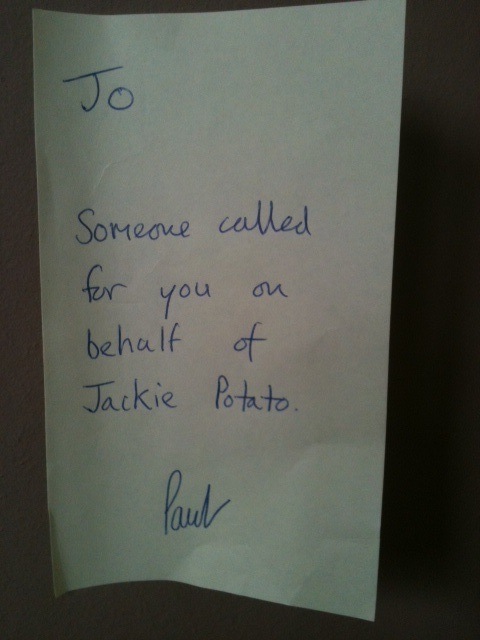 Jo
Someone called
for you on
behalf of
Jackie Potato.
Paul